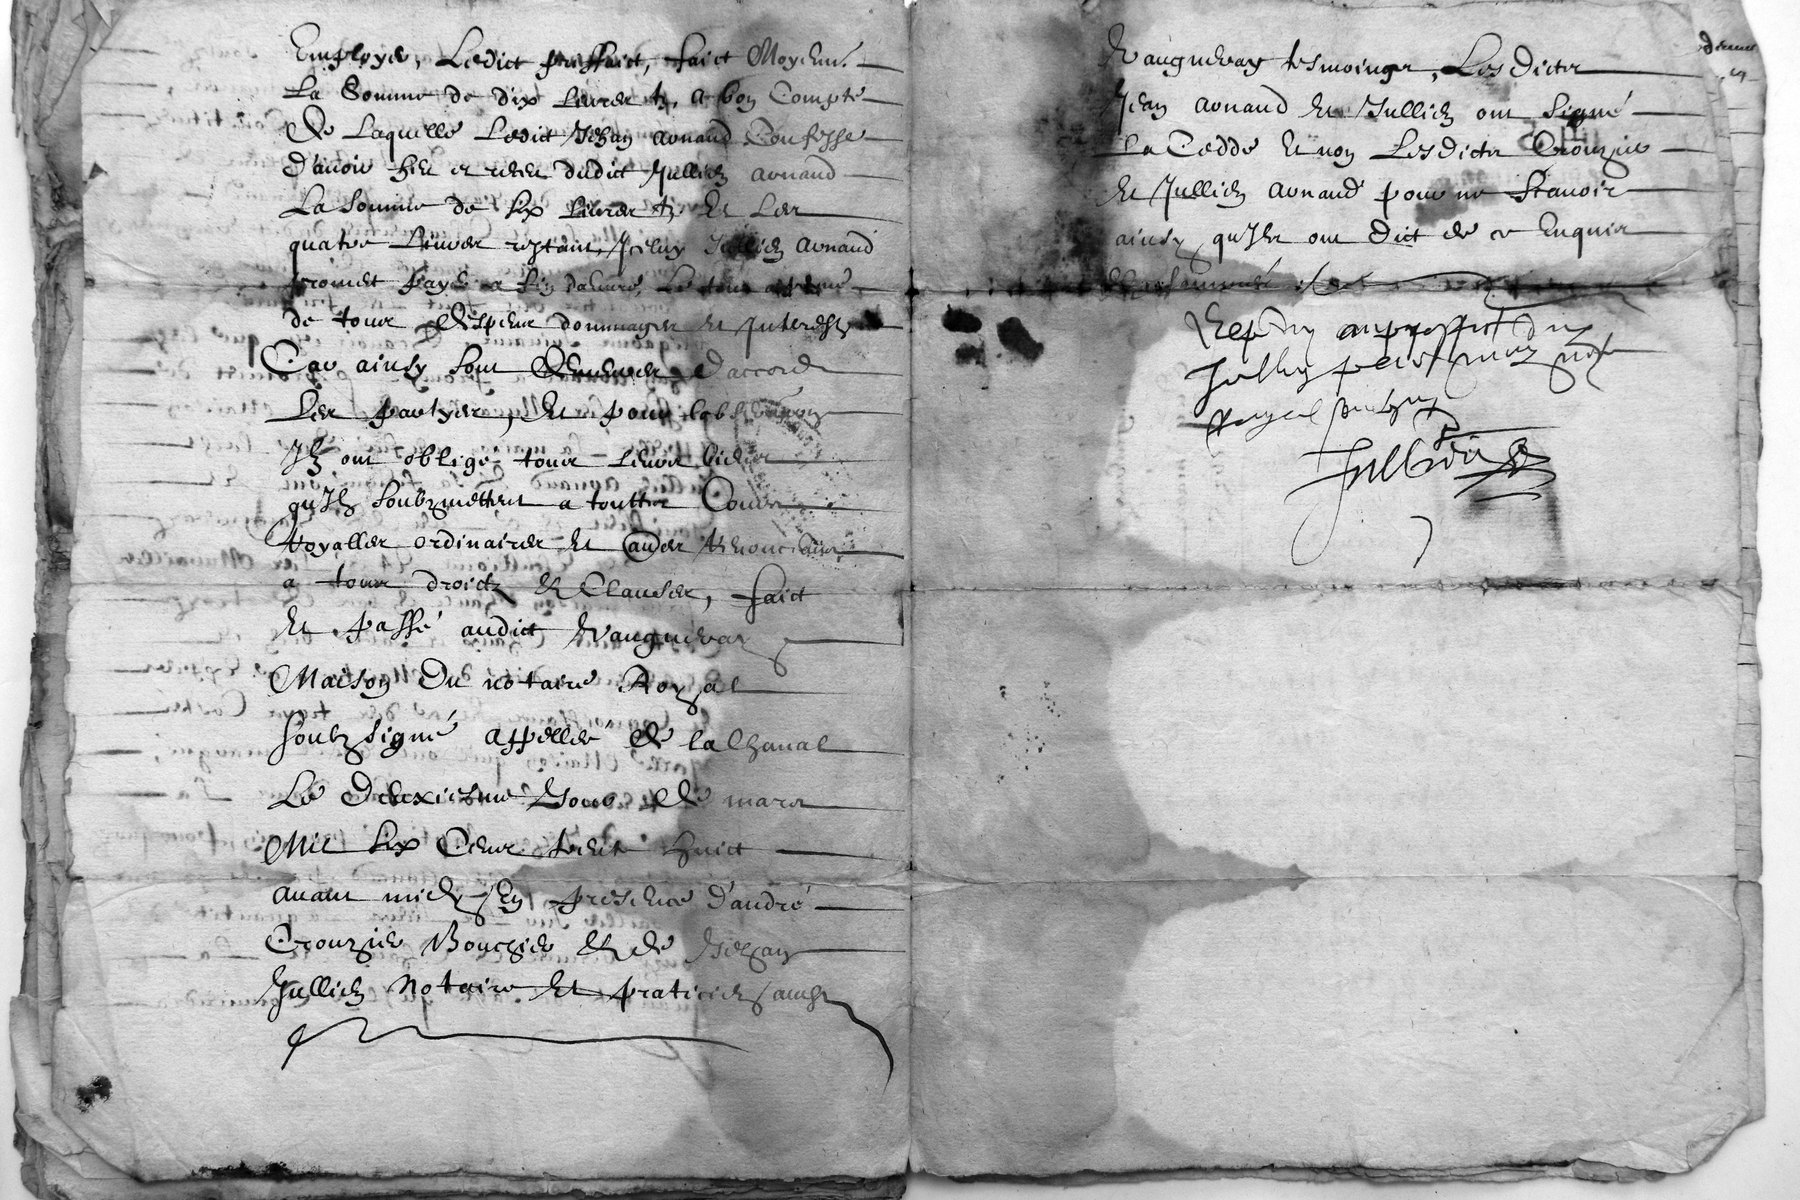 Employer, Ledict prisfaict, faict Moyenn.t
La Somme de dix Livres tz. a bon Compte
De Laquelle Ledict Jehan arnaud Confesse
D'auoir heu et receu dudict Jullien arnaud
La Somme de six Liures tz Et Les
quatre Liures restant, Jceluy Jullien arnaud
promet payer a fin d'œuure,
de tous despens dommages et Jnterestz
Car ainsy sont demeures d'accord
Les partyes, Et pour
Jlz ont obligé tous Leurs biens
qu'Jlz soubzmettent a touttes Cours
Royalles ordinaires Et aues Renonceans
a tous droictz et Clauses, faict
Et passé audict Vaugneray
Maison Du notaire Royal
soubzsigné appellee de la Chanal
Le Deuxiesme Jour de mars
Mil six Cens trente huict
auant midy En presence d'andré
Crouzier Bouchier et de Jehan
Jullien Notaire Et praticien audict
Vaugneray tesmoings, Lesdicts
Jean arnaud Et Jullien ont signé
La Cedde Et non Lesdicts Crouzier
Et Jullien arnaud pour ne scauoir
ainsy qu'Jlz ont dict de ce Enquis
Et
Expedié au proffict du
Jullien
Jullien